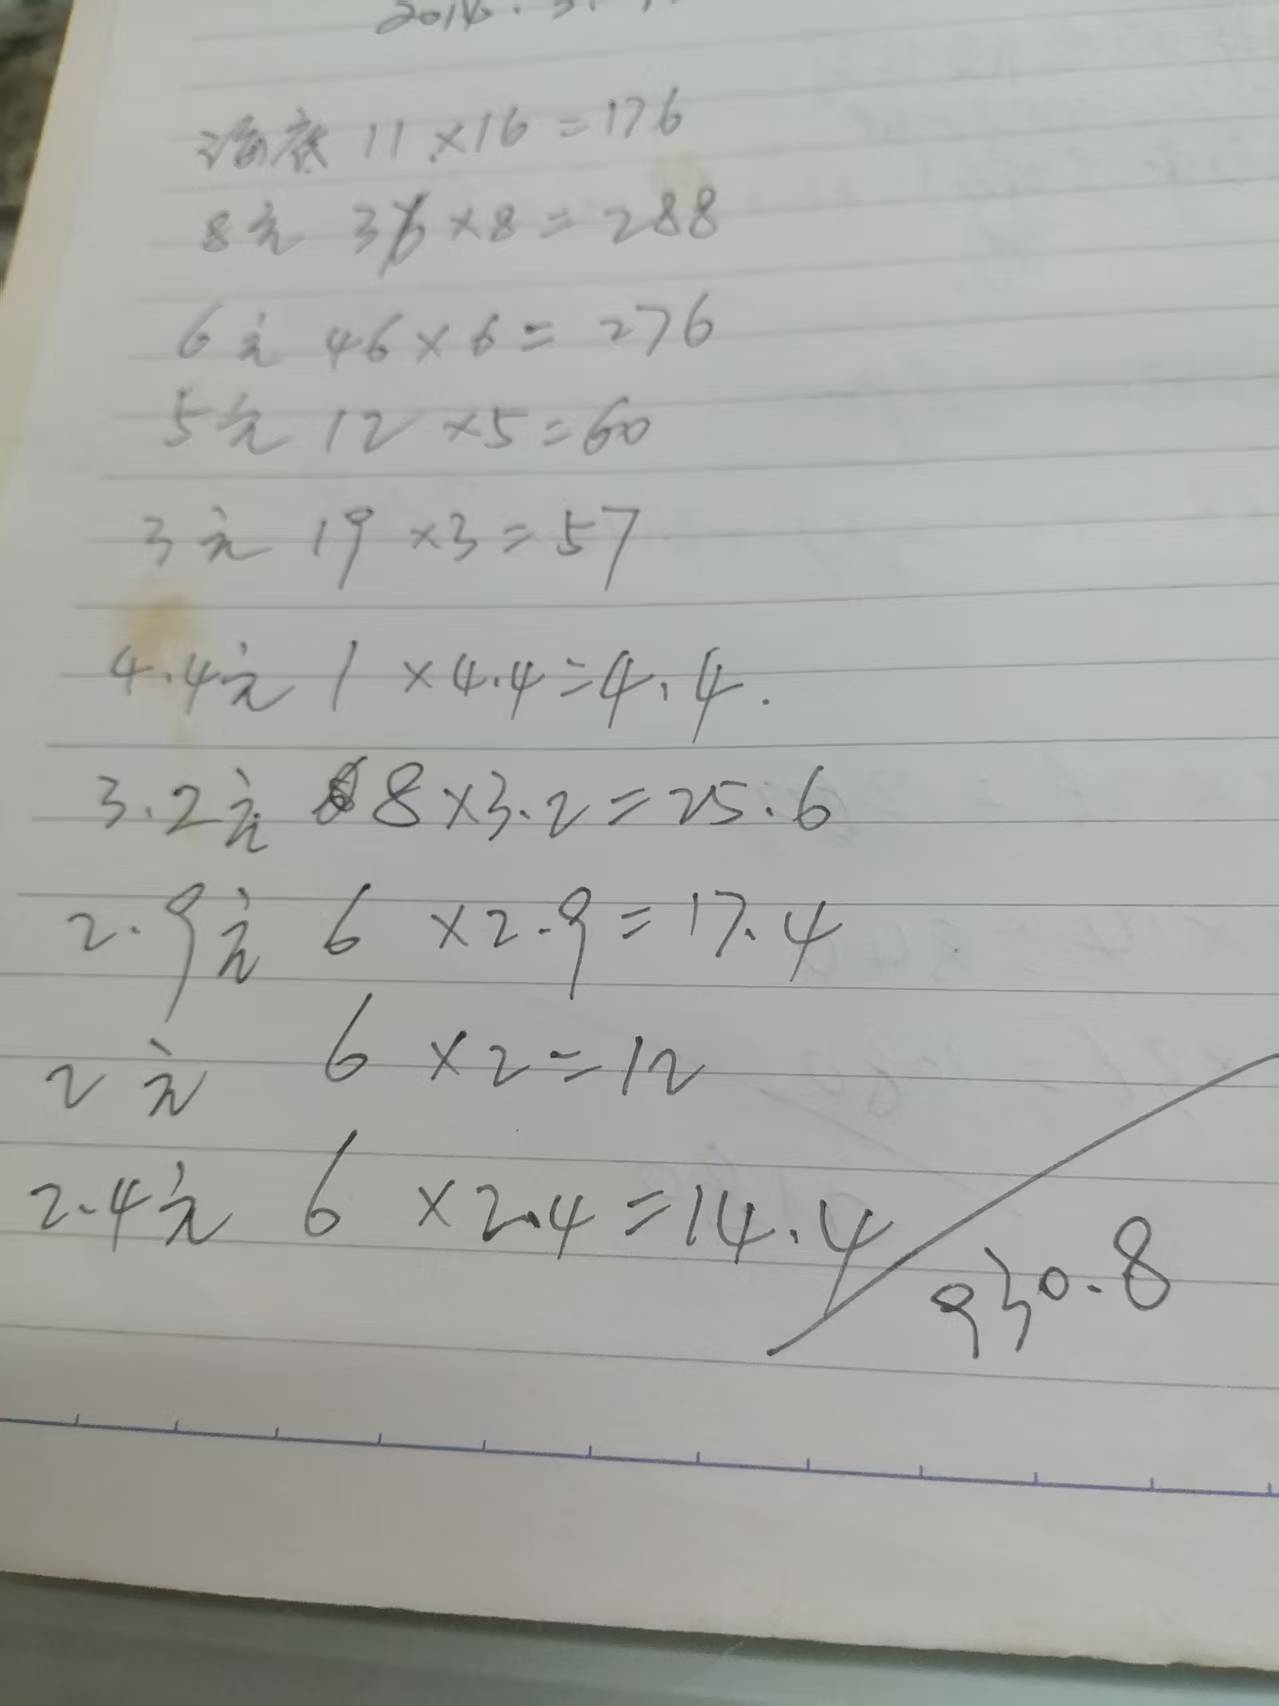 海底 11×16=176
8元 36×8=288
6元 46×6=276
5元 12×5=60
3元 19×3=57
4.4元 1×4.4=4.4.
3.2元 8×3.2=25.6
2.9元 6×2.9=17.4
2元 6×2=12
2.4元 6×2.4=14.4
930.8